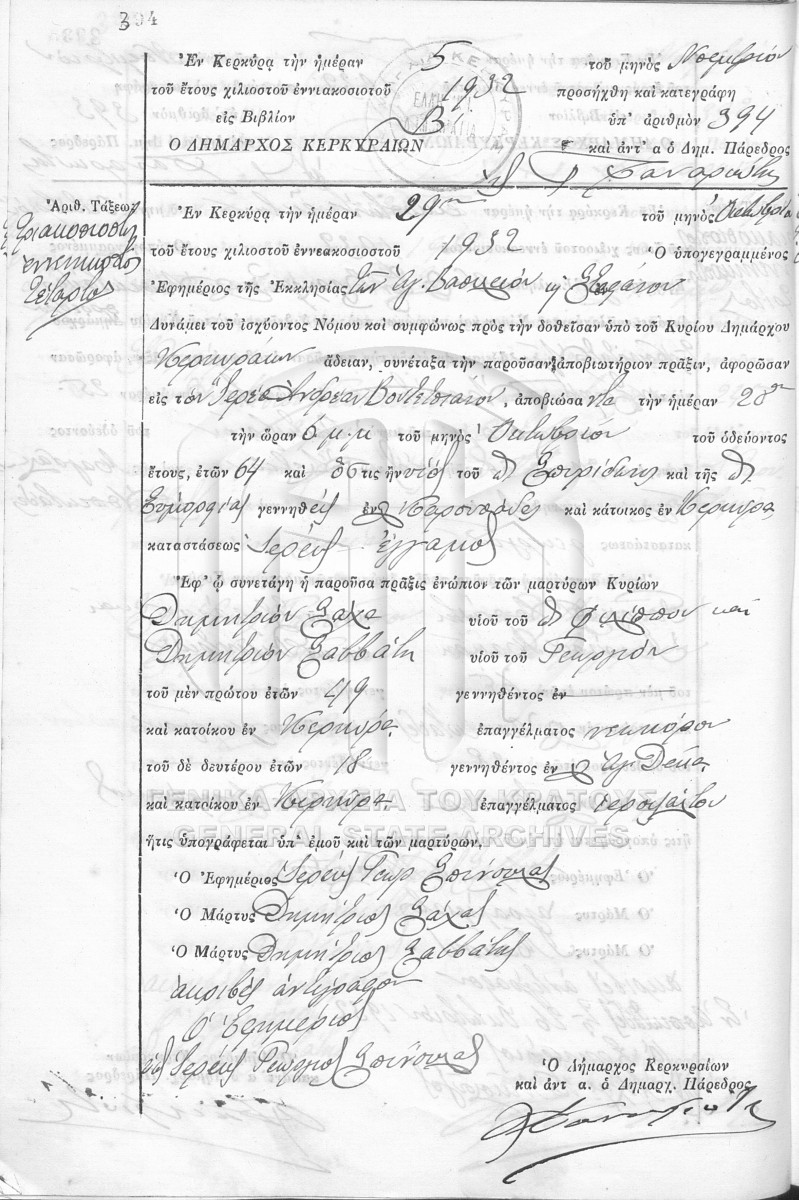 394
Ἐν Κερκύρᾳ τὴν ἡμέραν 5 τοῦ μηνὸς Νοεμβρίου
τοῦ ἔτους χιλιοστοῦ ἐννιακοσιοτοῦ 1932 προσήχθη καὶ κατεγράφη
εἰς Βιβλίον Β ὑπ' ἀριθμὸν 394
Ο ΔΗΜΑΡΧΟΣ ΚΕΡΚΥΡΑΙΩΝ καὶ ἀντ' α ὁ Δημ. Πάρεδρος
Ἀριθ. Τάξεως
Τριακοσιοστὴ
ἐννενηκοστὸ
τέταρτος
Ἐν Κερκύρᾳ τὴν ἡμέραν 29ην τοῦ μηνὸς Ὀκτωβρίου
τοῦ ἔτους χιλιοστοῦ ἐννεακοσιοστοῦ 1932 Ὁ ὑπογεγραμμένος
Ἐφημέριος τῆς Ἐκκλησίας τῶν Ἁγ. Βασιλείου καὶ Στεφάνου
Δυνάμει τοῦ ἰσχύοντος Νόμου καὶ συμφώνως πρὸς τὴν δοθεῖσαν ὑπὸ τοῦ Κυρίου Δημάρχου
Κερκυραίων ἄδειαν, συνέταξα τὴν παροῦσαν ἀποβιωτήριον πρᾶξιν, ἀφορῶσαν
εἰς τὸν Ἱερέα Ἀνδρέαν, ἀποβιώσαντα τὴν ἡμέραν 28ην
τὴν ὥραν 6 μ.μ. τοῦ μηνὸς Ὀκτωβρίου τοῦ ὁδεύοντος
ἔτους, ἐτῶν 64 καὶ ὅστις ἦν υἱὸς τοῦ Σπυρίδωνος καὶ τῆς
Εὐμορφίας γεννηθεὶς ἐν καὶ κάτοικος ἐν Κερκύρᾳ
καταστάσεως Ἱερεὺς ἔγγαμος
Ἐφ' ᾧ συνετάγη ἡ παροῦσα πρᾶξις ἐνώπιον τῶν μαρτύρων Κυρίων
Δημητρίου Σάχα υἱοῦ τοῦ Φιλίππου καὶ
Δημητρίου Σαββάτη υἱοῦ τοῦ Γεωργίου
τοῦ μὲν πρώτου ἐτῶν 49 γεννηθέντος ἐν
καὶ κατοίκου ἐν Κερκύρᾳ ἐπαγγέλματος νεωκόρου
τοῦ δὲ δευτέρου ἐτῶν 18 γεννηθέντος ἐν Ἁγ. Δέκα
καὶ κατοίκου ἐν Κερκύρᾳ ἐπαγγέλματος
ΓΕΝΙΚΑ ΑΡΧΕΙΑ ΤΟΥ ΚΡΑΤΟΥΣ
GENERAL STATE ARCHIVES
ἥτις ὑπογράφεται ὑπ' ἐμοῦ καὶ τῶν μαρτύρων,
Ὁ Ἐφημέριος Ἱερεὺς Γεωρ Σπίνουλας
Ὁ Μάρτυς Δημήτριος Σάχας
Ὁ Μάρτυς Δημήτριος Σαββάτης
ἀκριβὲς ἀντίγραφον
Ὁ Ἐφημέριος
Ἱερεὺς Γεώργιος Σπίνουλας
Ὁ Δήμαρχος Κερκυραίων
καὶ ἀντ α. ὁ Δημαρχ. Πάρεδρος